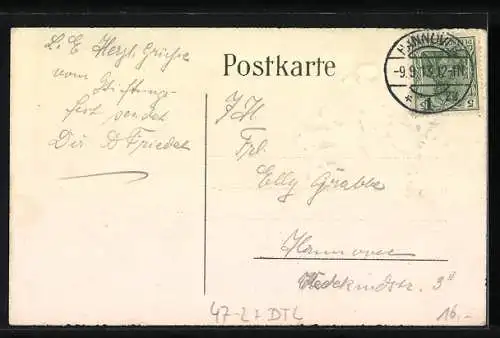 L. E. Herzl. Grüße
vom Stiftungs-
fest sendet
Dir D Friedel
Postkarte
HANNOVER
-9.9.13.12-1N.
Frl.
Elly Grabbe
Hannover
Wedekindstr. 3 II
47-27 DTL
16,-